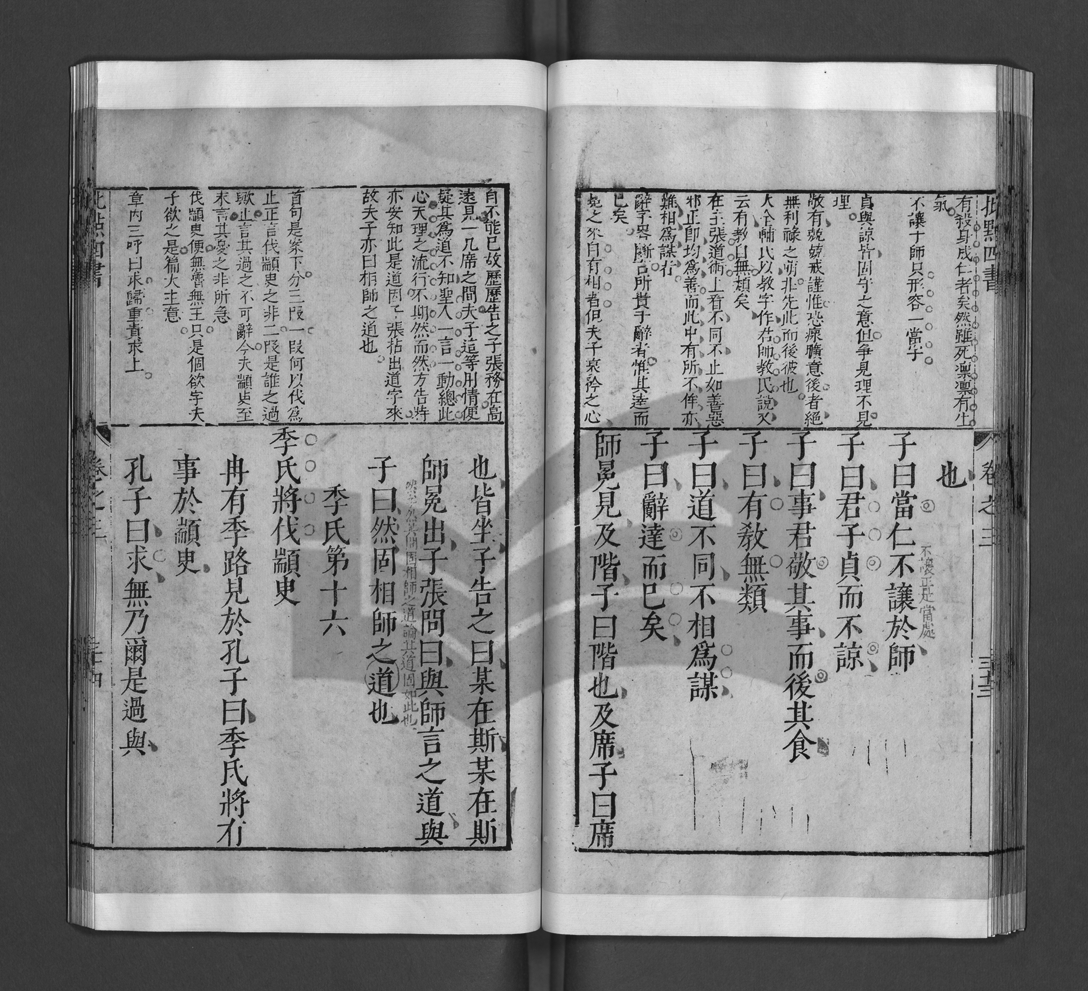 批點四書
有殺身成仁者矣然雖死凜凜有生
氣
不讓于師只形容一當字
貞與諒皆固守之意但爭見理不見
理
敬有兢兢戒謹惟恐瘝曠意後者絕
無利祿之萌非先此而後彼也
大全輔氏以教字作君師教民說又
云有教自無類矣
在主張道術上看不同不止如善惡
邪正即均為善而此中有所不侔亦
難相為謀
辭字畧斷所貴于辭者惟其達而
已矣
冕之來自有相者但夫子哀矜之心
卷之三
也
子曰當仁不讓於師
不讓正是當處
子曰君子貞而不諒
子曰事君敬其事而後其食
子曰有敎無類
子曰道不同不相爲謀
子曰辭達而已矣
師冕見及階子曰階也及席子曰席
自不能已故歷歷告之子張務在高
遠見一几席之間夫子這等用情便
疑其為道不知聖人一言一動總此
心天理之流行不期然而然方告時
亦妄知此是道因子張拈出道字來
故夫子亦曰相師之道也
首句是案下分三段一段何以伐為
止正言伐顓臾之非二段是誰之過
歟止言其過之不可辭今夫顓臾至
末言其憂之非所急
伐顓臾便無魯無王只是個欲字夫
子欲之是篇大主意
章內三呼曰求歸重責求上
批點四書
也皆坐子告之曰某在斯某在斯
師冕出子張問曰與師言之道與
子曰然固相師之道也
季氏第十六
季氏將伐顓臾
冉有季路見於孔子曰季氏將有
事於顓臾
孔子曰求無乃爾是過與
卷之三